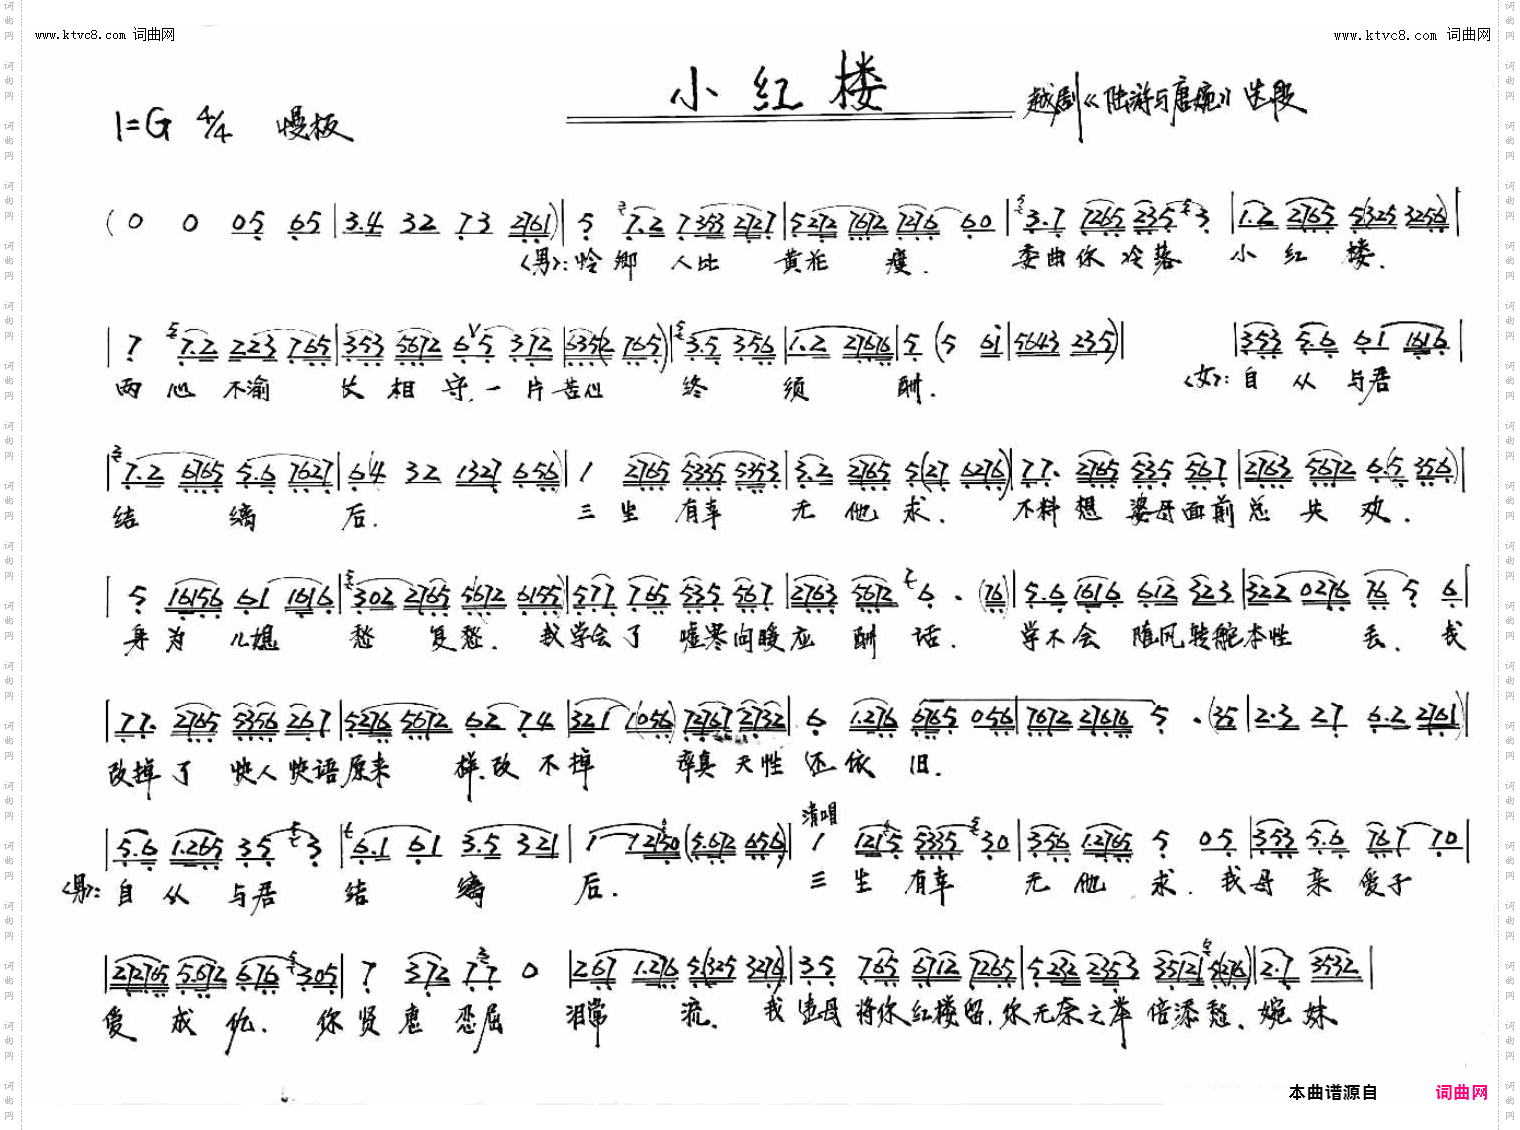 www.ktvc8.com 词曲网
www.ktvc8.com 词曲网
小红楼
越剧《陆游与唐婉》选段
1=G 4/4 慢板
(0 0 05 65|3.4 32 73 2761)|5 7.2 7353 2727|5272 7672 7276 60|3.7 7265 235 3|1.2 2765 5(325 3256)|
<男>:怜卿人比黄花瘦.委曲你冷落小红楼.
|7 7.2 223 765|353 5672 65 372|6352 765)|3.5 356|1.2 27676|5 (5 6i|5643 235)| |353 5.6 61 1616|
两心不渝长相守,一片苦心终须酬. <女>:自从与君
|7.2 6765 5.6 7627|64 32 1327 656)|1 2765 5335 5353|3.2 2765 5(27 6276)|77. 2765 535 567|2763 5672 6(5 356)|
结缡后. 三生有幸无他求.不料想婆母面前总失欢.
|5 16156 61 1616|302 2765 5672 6155)|577 765 535 567|2763 5672 6. (76)|5.6 1616 612 323|322 0276 76 5 6|
身为儿媳愁复愁.我学会了嘘寒问暖应酬话.学不会随风转舵本性丢.我
|77. 2765 5356 267|5276 5672 62 74|321 (056) 72767 2732|6 1.276 6765 056|7672 27676 5 . (35|2.3 27 6.2 2761)|
改掉了快人快语原来样,改不掉率真天性还依旧.
清唱
|5.6 1.265 35 3|6.1 61 3.5 321|1 72150 (5.672 656)|1 12165 5335 30|356 1.2765 5 05|353 5.6 767 70|
<男>:自从与君结缡后.三生有幸无他求.我母亲爱子
|272765 5.672 676 305|7 372 77 0|267 1.276 5(325 3276)|35 765 6712 7265|5232 2353 35121 5(276)|2.7 3532|
爱成仇.你贤惠 泪常流.我 母将你红楼留,你无奈之举倍添愁.婉妹
本曲谱源自 词曲网